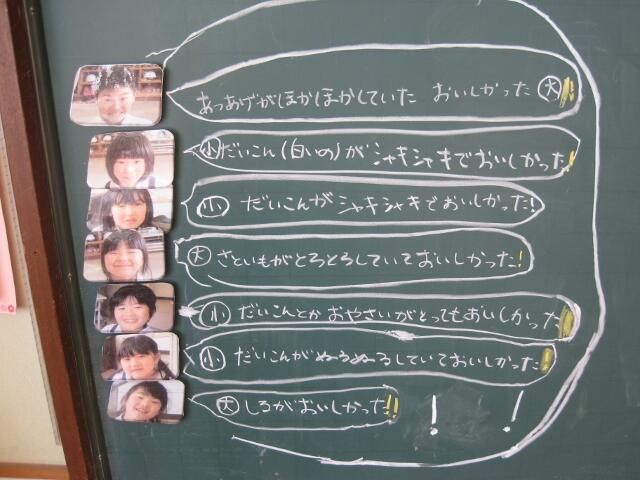 あつあげがほかほかしていた おいしかった 大!
小 だいこん(白いの)が シャキシャキでおいしかった!
小 だいこんが シャキシャキでおいしかった!
大 さといもがとろとろしていておいしかった!
小 だいこんとか おやさいがとってもおいしかった!
小 だいこんがぬるぬるしていておいしかった!
大 しるがおいしかった!! ! !